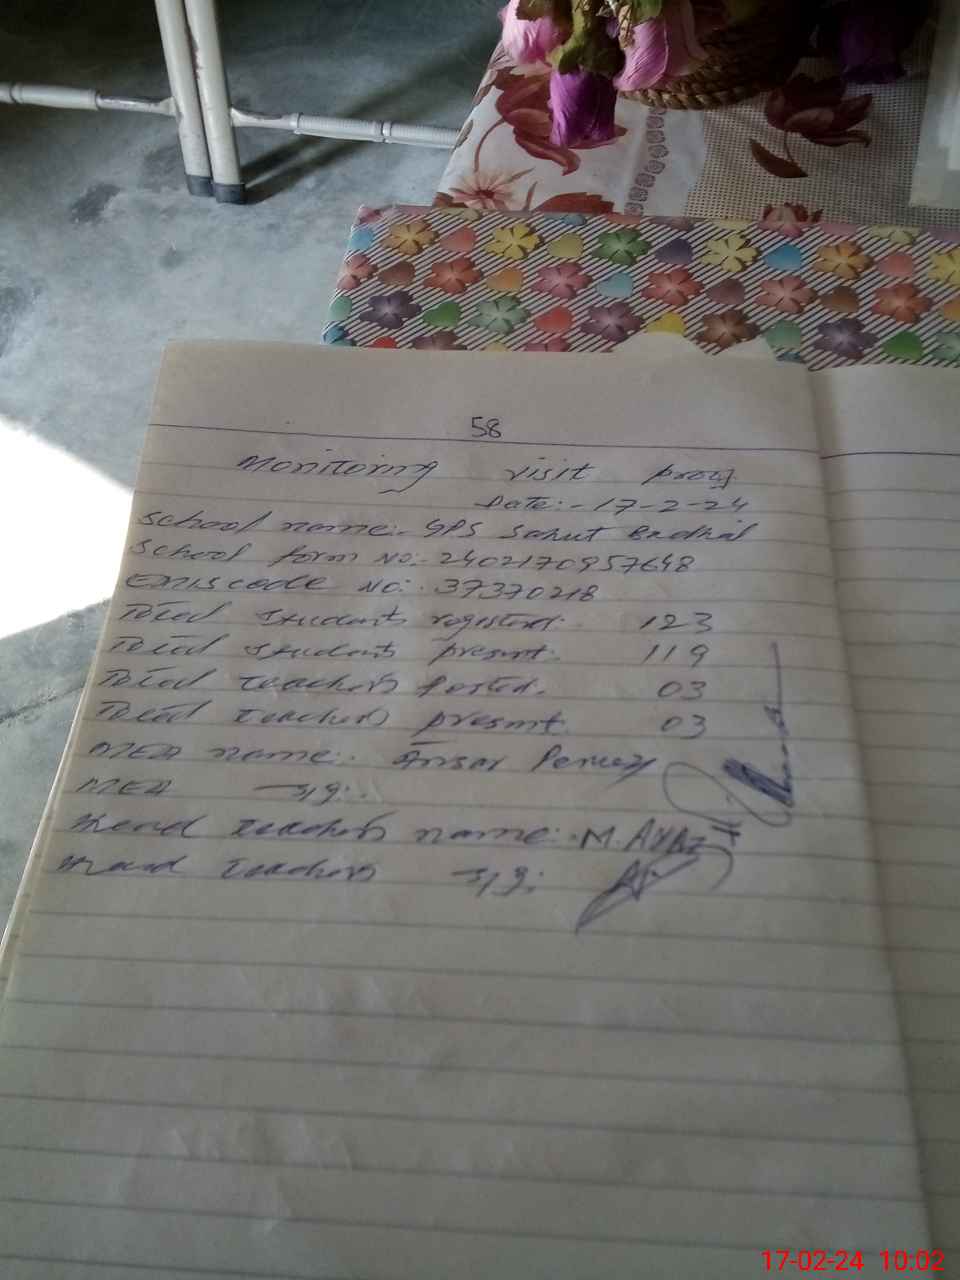 58
Monitoring visit proof
Date:- 17-2-24
School name:- GPS Sahut Badhal
School form No:- 2402170957648
EMIS code No:- 37370218
Total students registered:- 123
Total students present:- 119
Total teachers posted:- 03
Total teachers present:- 03
MEA name:- Ansar Pervez
MEA sig:-
Head teachers name:- M. AYAZ
Head teachers sig:
17-02-24 10:02